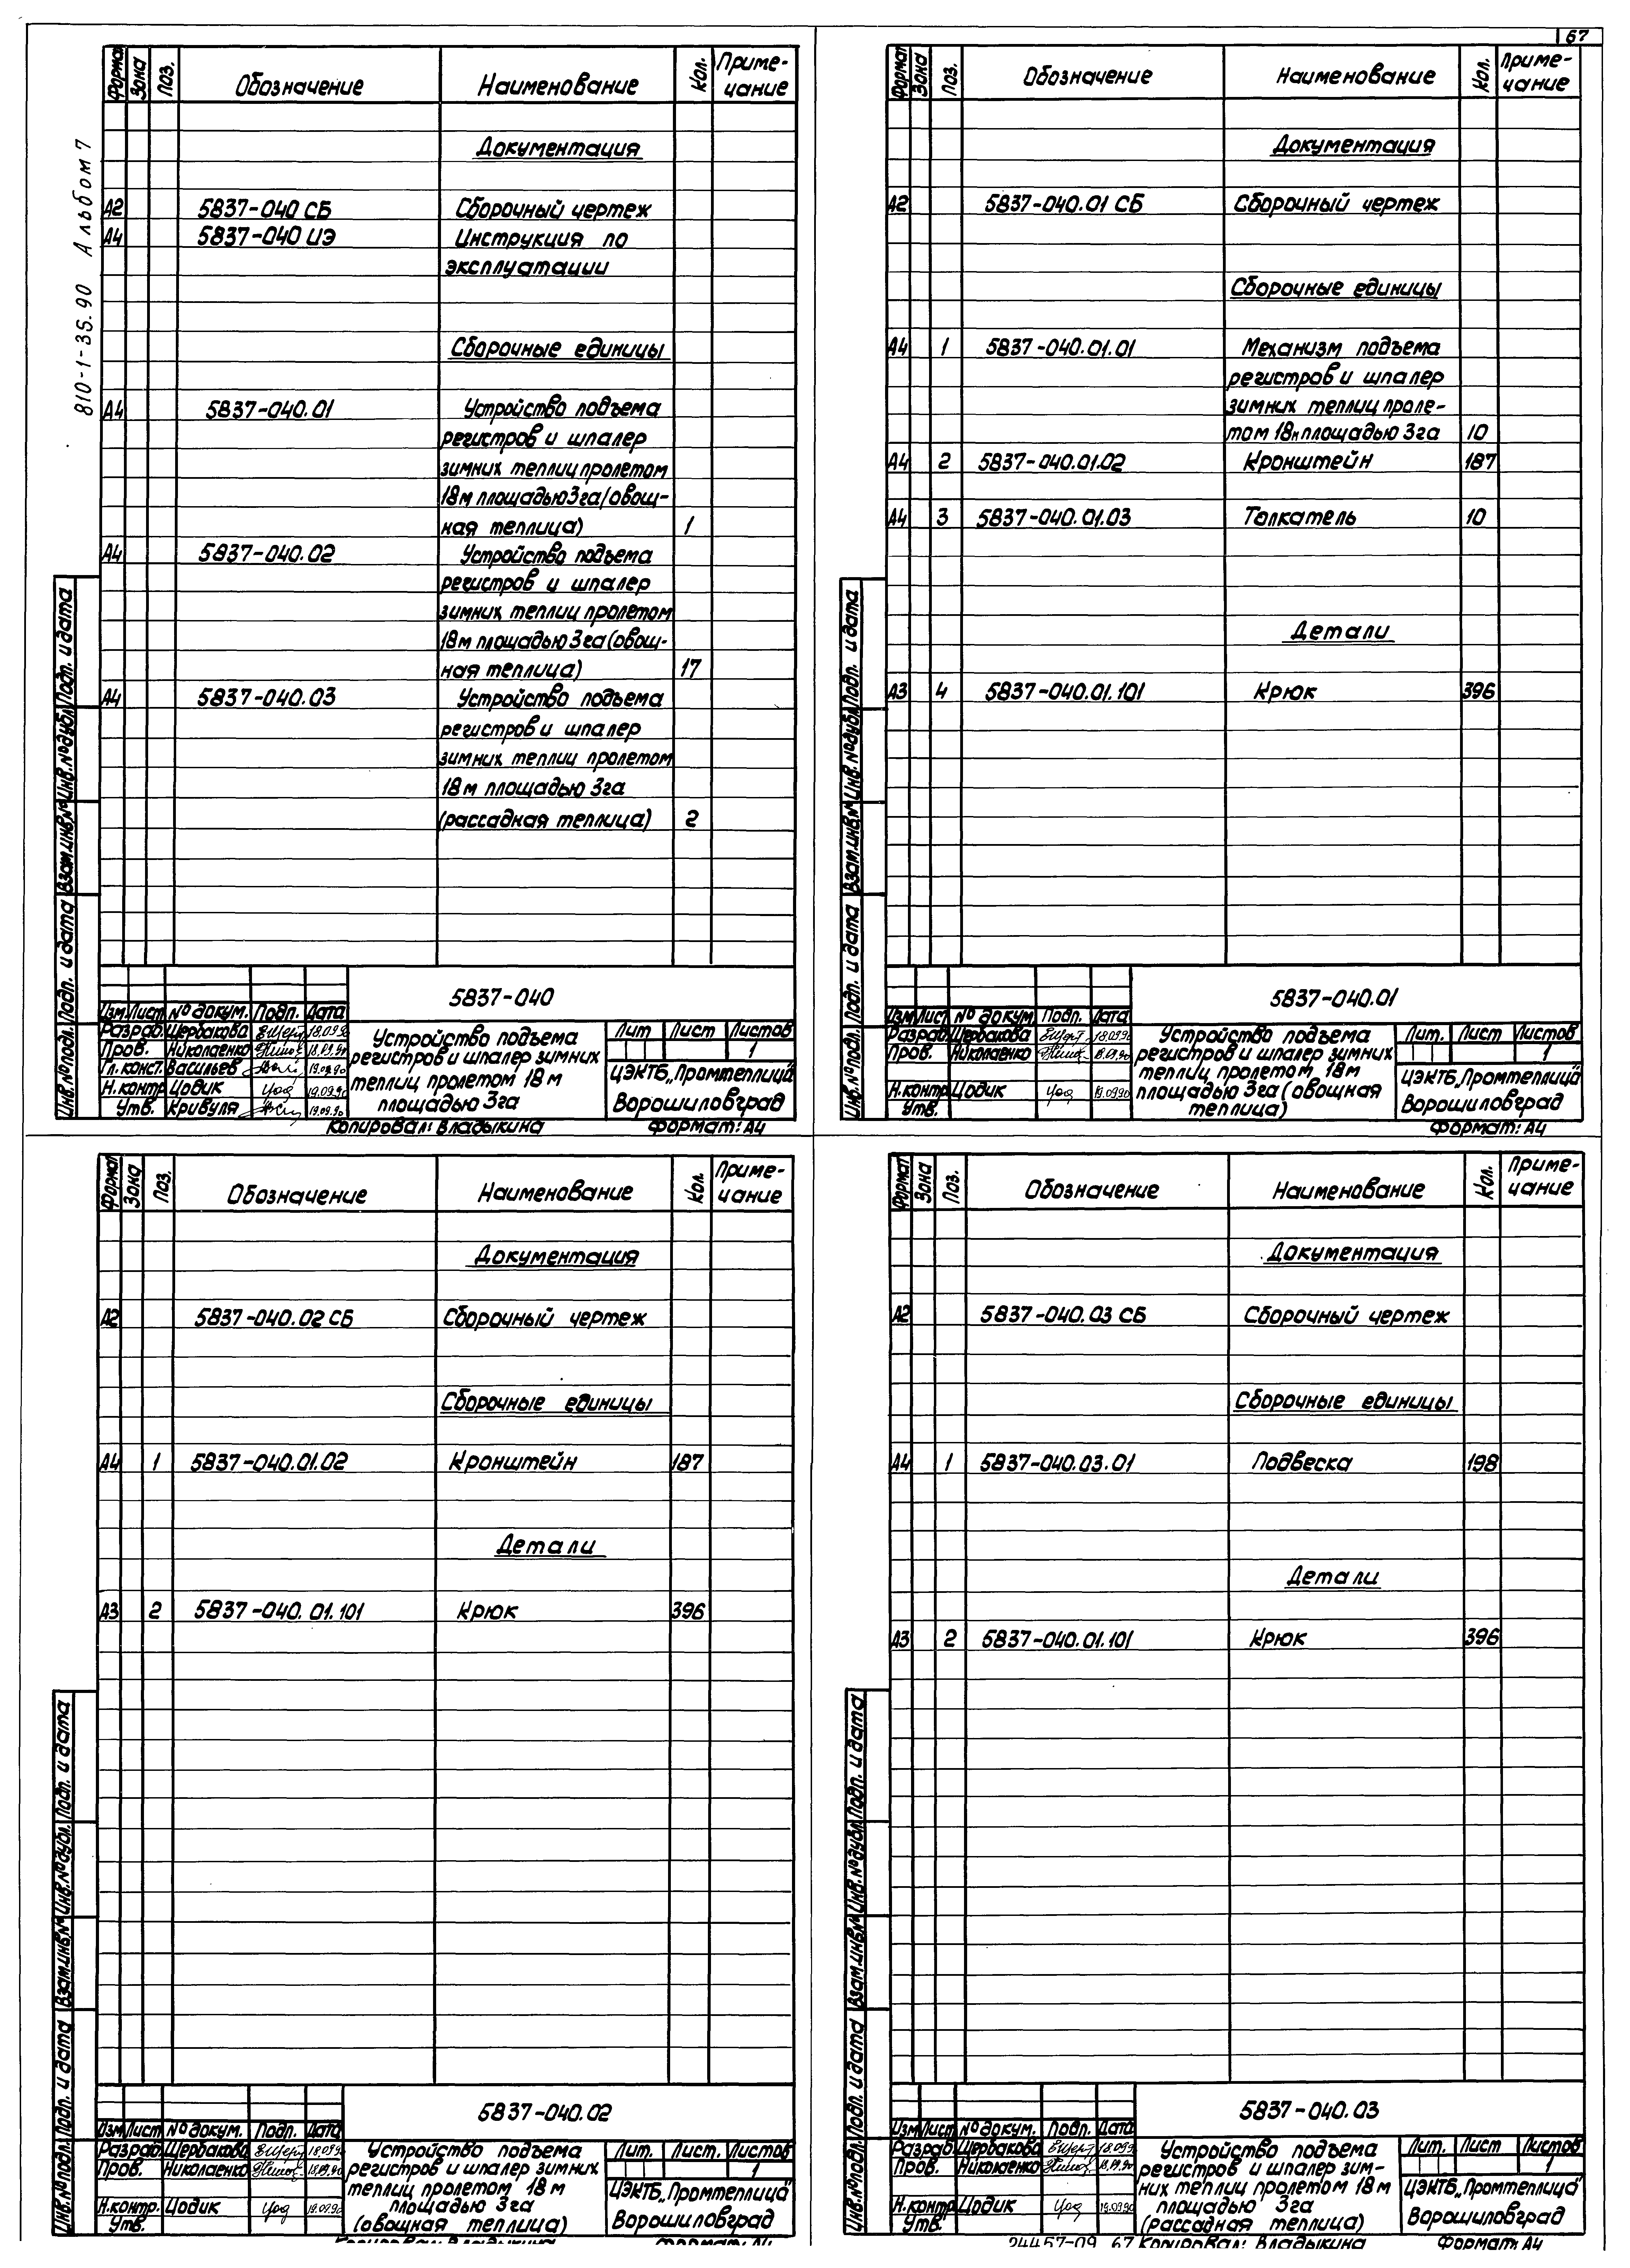 67
810-1-35.90 Альбом 7
Формат Зона Поз. Обозначение Наименование Кол. Приме-
чание
Документация
А2 5837-040 СБ Сборочный чертеж
А4 5837-040 ИЭ Инструкция по
эксплуатации
Сборочные единицы
А4 5837-040.01 Устройство подъема
регистров и шпалер
зимних теплиц пролетом
18м площадью 3га (овощ-
ная теплица) 1
А4 5837-040.02 Устройство подъема
регистров и шпалер
зимних теплиц пролетом
18м площадью 3га (овощ-
ная теплица) 17
А4 5837-040.03 Устройство подъема
регистров и шпалер
зимних теплиц пролетом
18м площадью 3га
(рассадная теплица) 2
Инв.№подл. Подп. и дата Взам.инв.№ Инв.№дубл. Подп. и дата
5837-040
Изм Лист № докум. Подп. Дата
Разраб. Щербакова 18.09.90
Пров. Николаенко 18.09.90
Гл. конст. Васильев 19.09.90
Н.контр. Цодик 19.09.90
Утв. Кривуля 19.09.90
Устройство подъема
регистров и шпалер зимних
теплиц пролетом 18 м
площадью 3га
Лит Лист Листов
1
ЦЭКТБ „Промтеплица"
Ворошиловград
Копировал: Владыкина Формат: А4
Формат Зона Поз. Обозначение Наименование Кол. Приме-
чание
Документация
А2 5837-040.01 СБ Сборочный чертеж
Сборочные единицы
А4 1 5837-040.01.01 Механизм подъема
регистров и шпалер
зимних теплиц проле-
том 18м площадью 3га 10
А4 2 5837-040.01.02 Кронштейн 187
А4 3 5837-040.01.03 Толкатель 10
Детали
А3 4 5837-040.01.101 Крюк 396
Инв.№подл. Подп. и дата Взам.инв.№ Инв.№дубл. Подп. и дата
5837-040.01
Изм Лист № докум. Подп. Дата
Разраб. Щербакова 18.09.90
Пров. Николаенко 18.09.90
Н.контр. Цодик 19.09.90
Утв.
Устройство подъема
регистров и шпалер зимних
теплиц пролетом 18м
площадью 3га (овощная
теплица)
Лит. Лист Листов
1
ЦЭКТБ „Промтеплица"
Ворошиловград
Формат: А4
Формат Зона Поз. Обозначение Наименование Кол. Приме-
чание
Документация
А2 5837-040.02 СБ Сборочный чертеж
Сборочные единицы
А4 1 5837-040.01.02 Кронштейн 187
Детали
А3 2 5837-040.01.101 Крюк 396
Инв.№подл. Подп. и дата Взам.инв.№ Инв.№дубл. Подп. и дата
5837-040.02
Изм Лист № докум. Подп. Дата
Разраб. Щербакова 18.09.90
Пров. Николаенко 18.09.90
Н.контр. Цодик 19.09.90
Утв.
Устройство подъема
регистров и шпалер зимних
теплиц пролетом 18 м
площадью 3га
(овощная теплица)
Лит. Лист. Листов
1
ЦЭКТБ „Промтеплица"
Ворошиловград
Копировал: Владыкина Формат: А4
Формат Зона Поз. Обозначение Наименование Кол. Приме-
чание
Документация
А2 5837-040.03 СБ Сборочный чертеж
Сборочные единицы
А4 1 5837-040.03.01 Подвеска 198
Детали
А3 2 5837-040.01.101 Крюк 396
Инв.№подл. Подп. и дата Взам.инв.№ Инв.№дубл. Подп. и дата
5837-040.03
Изм Лист № докум. Подп. Дата
Разраб. Щербакова 18.09.90
Пров. Николаенко 18.09.90
Н.контр. Цодик 19.09.90
Утв.
Устройство подъема
регистров и шпалер зим-
них теплиц пролетом 18 м
площадью 3га
(рассадная теплица)
Лит. Лист Листов
1
ЦЭКТБ „Промтеплица"
Ворошиловград
24457-09 67 Копировал: Владыкина Формат: А4